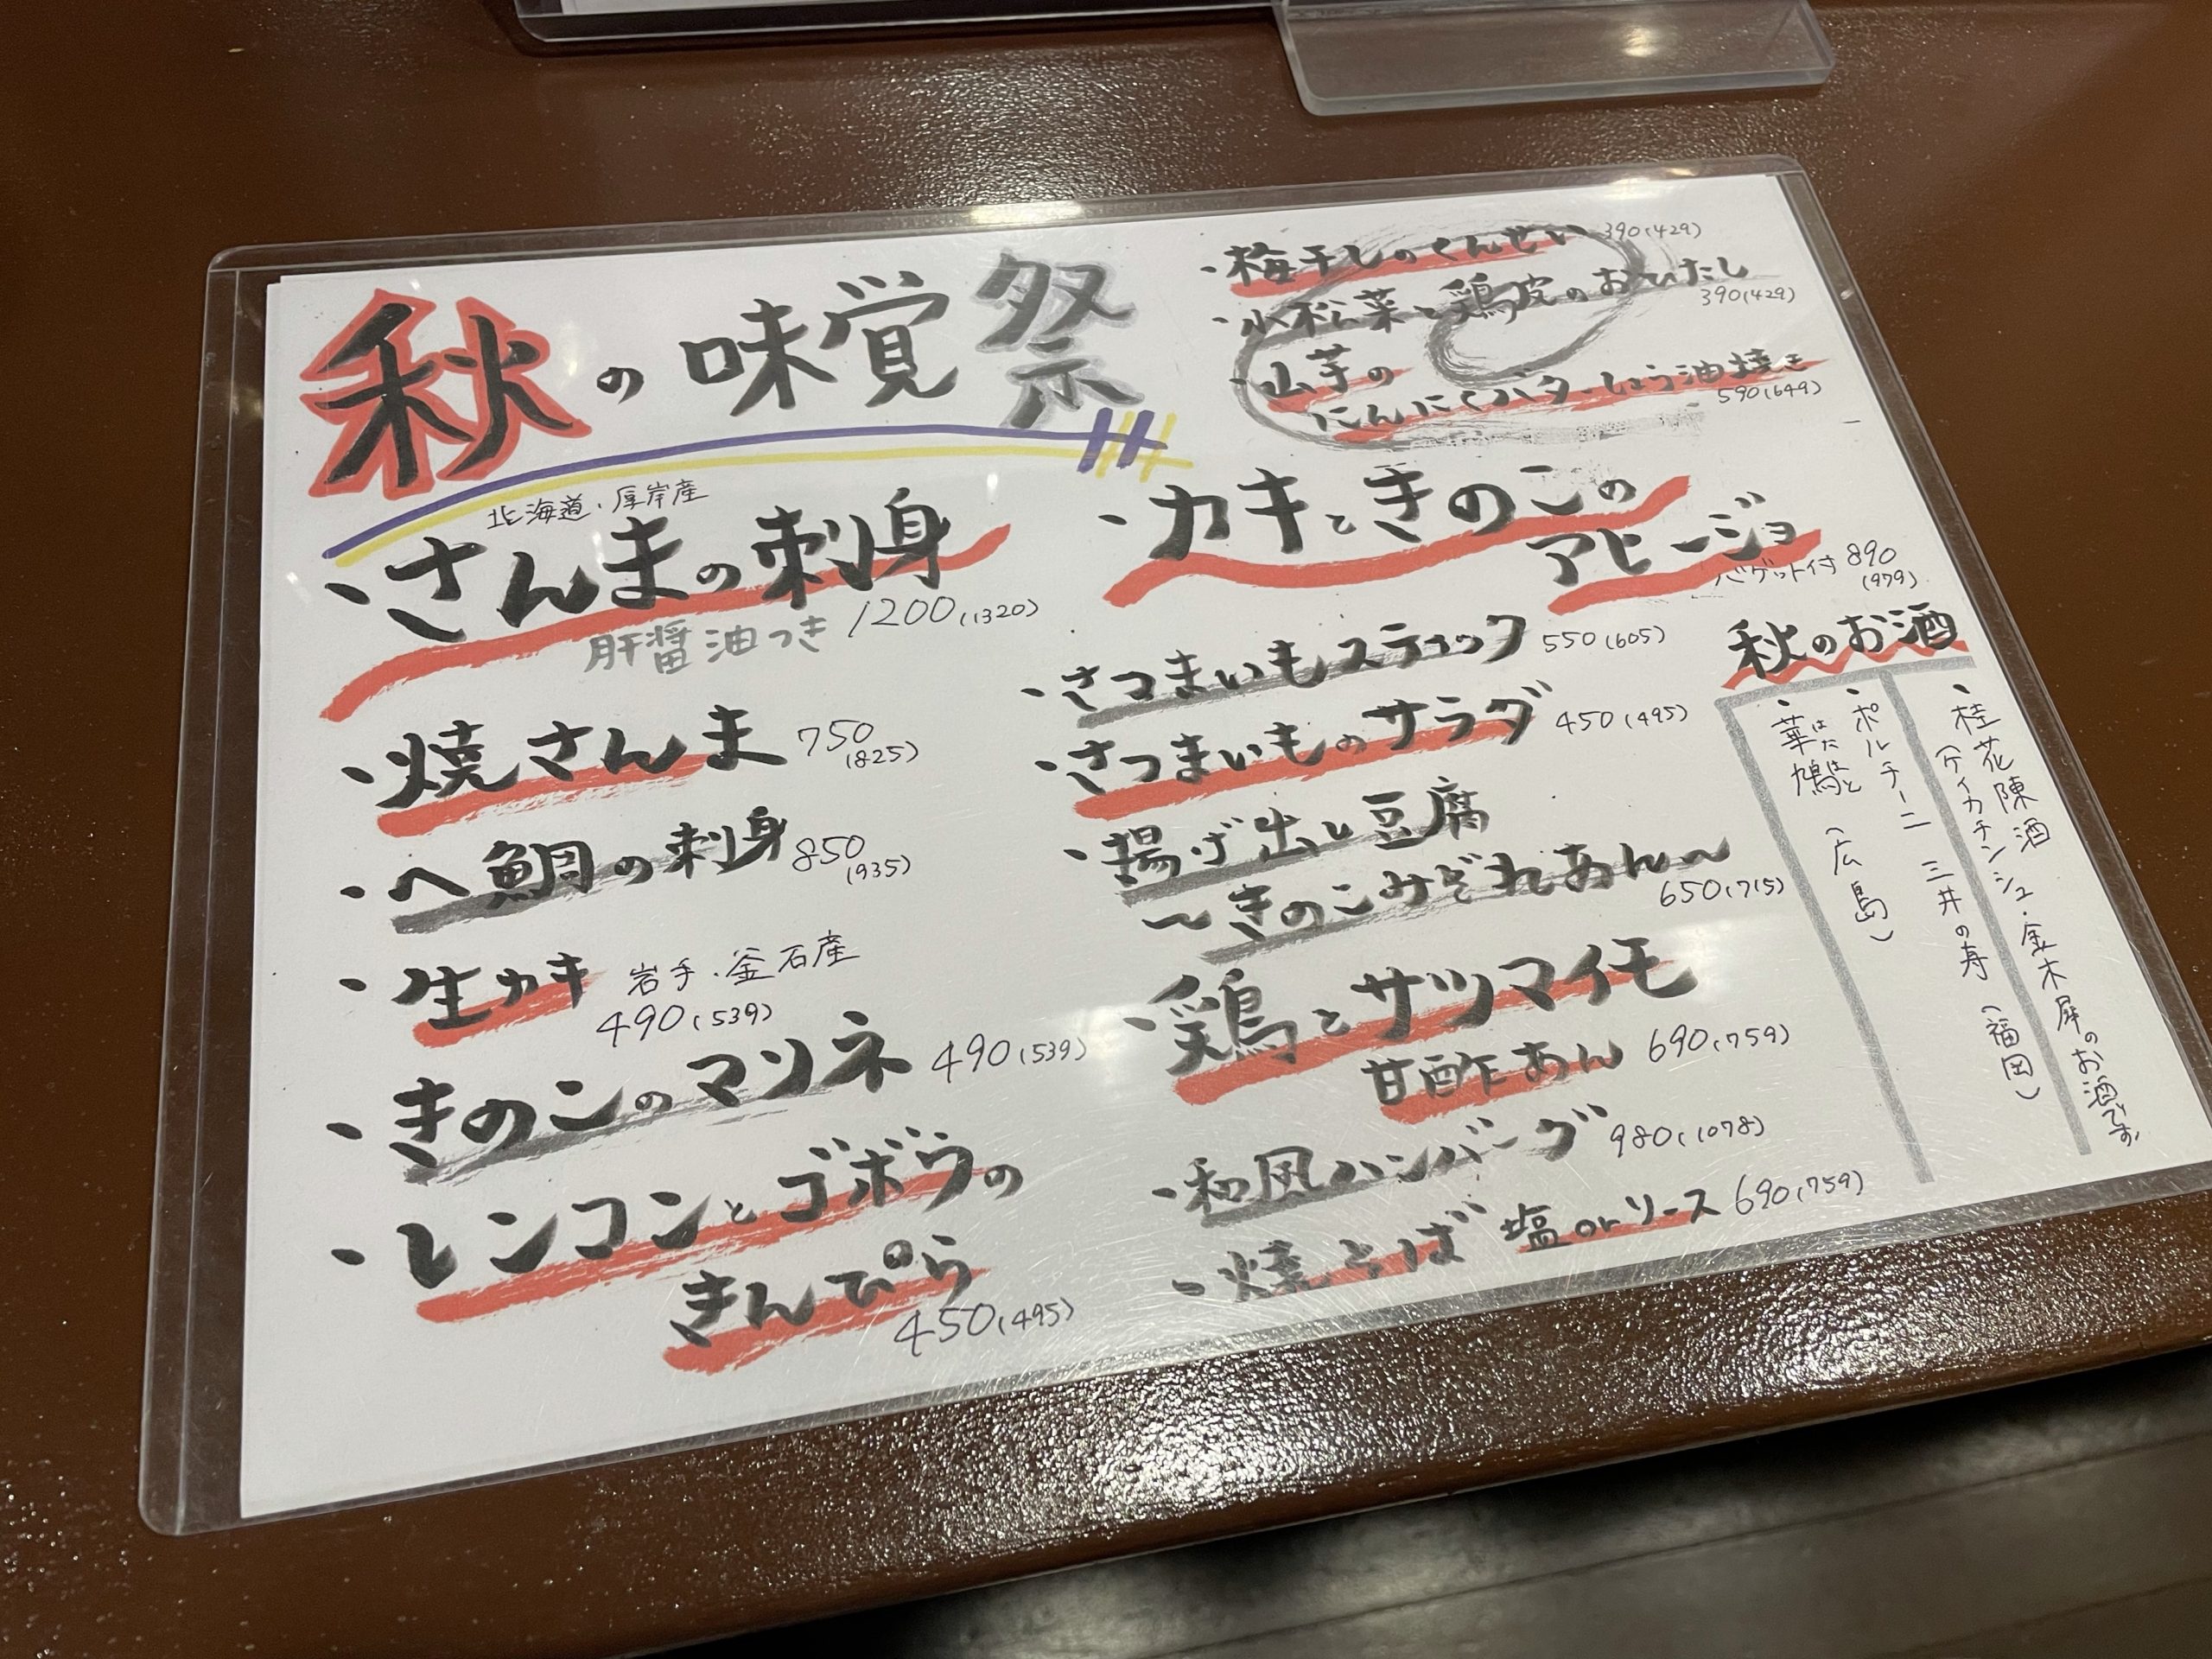 秋の味覚祭
北海道・厚岸産
・さんまの刺身
肝醤油つき 1200(1320)
・焼さんま 750
(825)
・へ鯛の刺身 850
(935)
・生カキ 岩手・釜石産
490(539)
・きのこのマリネ 490(539)
・レンコンとゴボウの
きんぴら
450(495)
・梅干しのくんせい 390(429)
・小松菜と鶏皮のおひたし
390(429)
・山芋の
にんにくバターしょう油焼き
590(649)
・カキときのこの
アヒージョ
バゲット付 890
(979)
・さつまいもスティック 550(605)
・さつまいものサラダ 450(495)
・揚げ出し豆腐
〜きのこみぞれあん〜
650(715)
・鶏とサツマイモ
甘酢あん 690(759)
・和風ハンバーグ 980(1078)
・焼そば 塩orソース 690(759)
秋のお酒
・桂花陳酒
(ケイカチンシュ・金木犀のお酒です)
・ポルチーニ 三井の寿(福岡)
・華鳩(広島)
はなはと